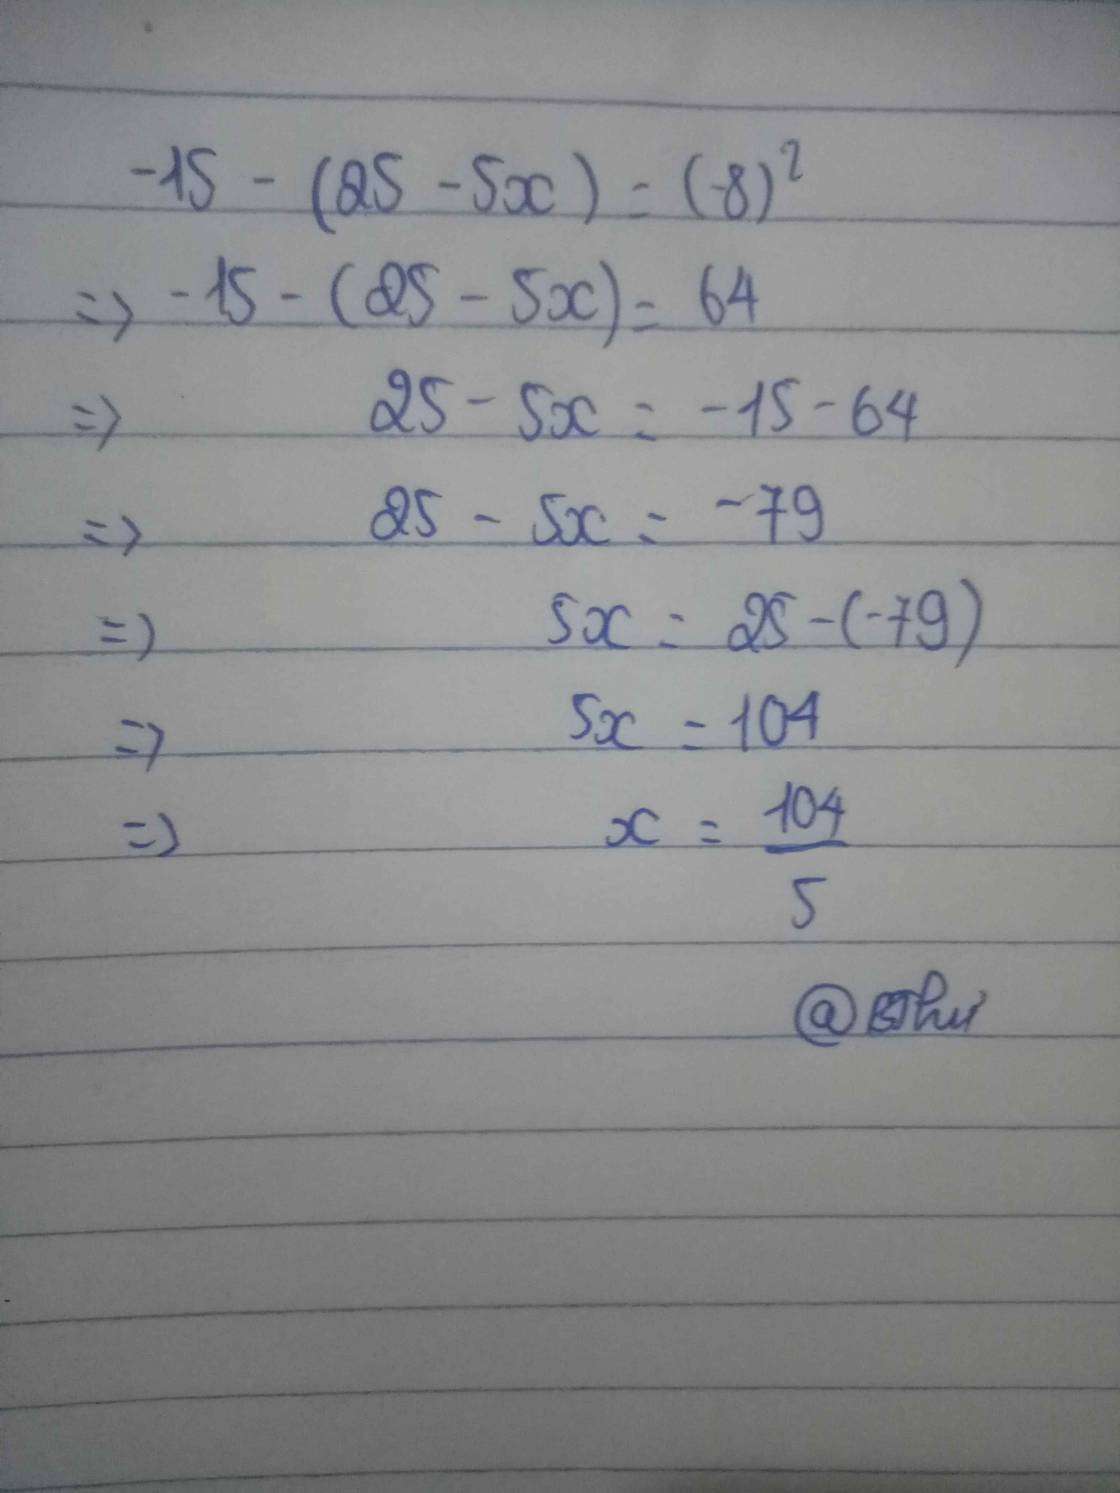 -15 - (25 - 5x) = (-8)²
=> -15 - (25 - 5x) = 64
=> 25 - 5x = -15 - 64
=> 25 - 5x = -79
=> 5x = 25 - (-79)
=> 5x = 104
=> x = 104/5